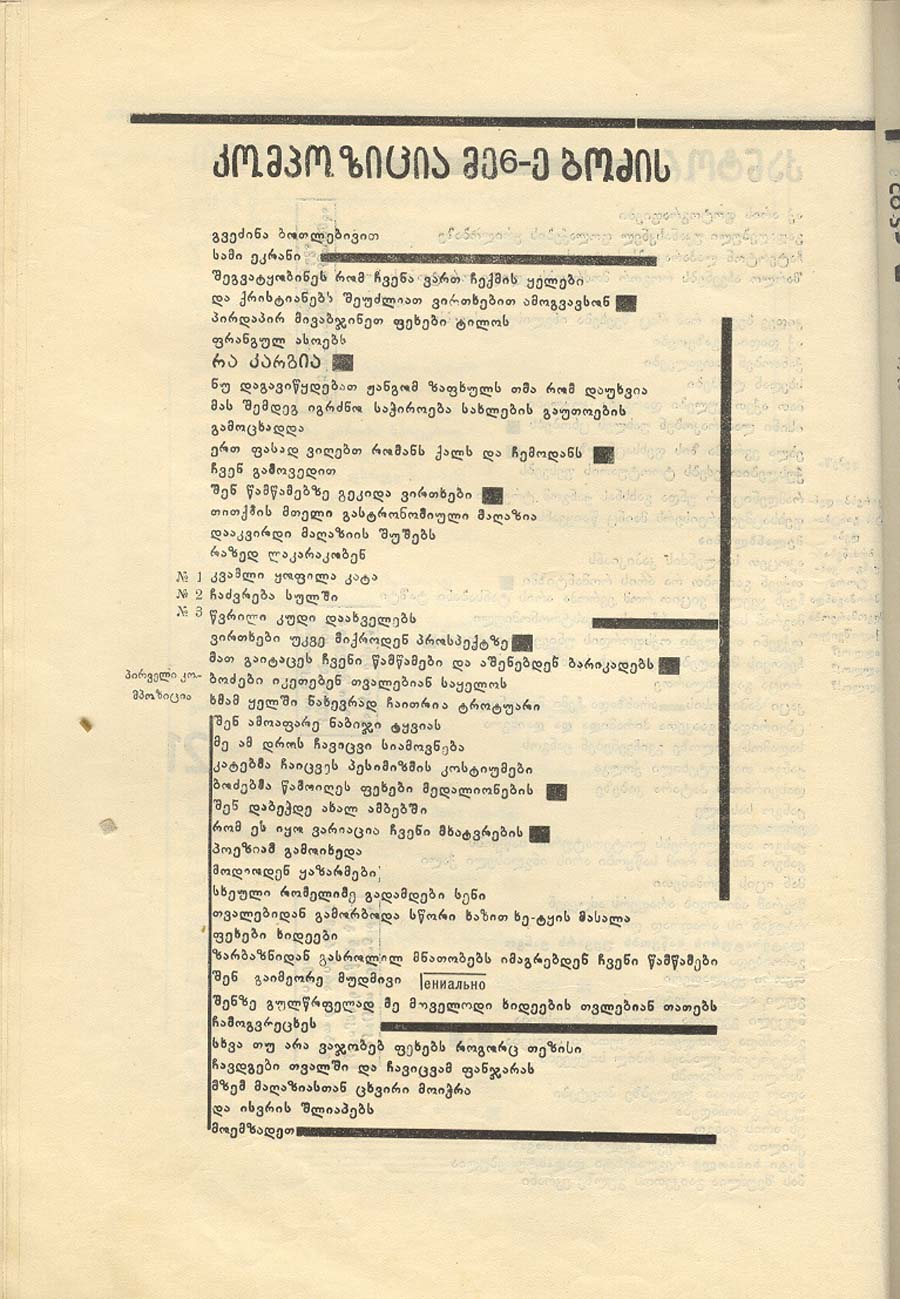 კომპოზიცია მე6-ე ბოძის
გვეძინა ბოთლებივით
სამი ეკრანი
შეგვატყობინეს რომ ჩვენა ვართ ჩექმის ყელები
და ქრისტიანებს შეუძლიათ ვირთხებით ამოგვავსონ
პირდაპირ მივაბჯინეთ ფეხები ტილოს
ფრანგულ ასოებს
რა კარგია
ნუ დაგავიწყდებათ ჟანგომ ზაფხულს თმა რომ დაუხვია
მას შემდეგ იგრძნო საჭიროება სახლების გაუთოების
გამოცხადდა
ერთ ფასად ვიღებთ რომანს ქალს და ჩემოდანს
ჩვენ გამოვედით
შენ წამწამებზე გეკიდა ვირთხები
თითქმის მთელი გასტრონომიული მაღაზია
დააკვირდი მაღაზიის შუშებს
რაზედ ლაკარაკობენ
№ 1 კვამლი ყოფილა კატა
№ 2 ჩაძვრება სულში
№ 3 წვრილი კუდი დაახველებს
ვირთხები უკვე მიქროდენ პროსპექტზე
მათ გაიტაცეს ჩვენი წამწამები და აშენებდენ ბარიკადებს
პირველი კო-
მპოზიცია
ბოძები იკეთებენ თვალებიან საყელოს
ხმამ ყელში ნახევრად ჩაითრია ტროტუარი
შენ ამოაფარე ნაბიჯი ტყვიას
მე ამ დროს ჩავიცვი სიამოვნება
კატებმა ჩაიცვეს პესიმიზმის კოსტიუმები
ბოძებმა წამოიღეს ფეხები მედალიონების
შენ დაბეჭდე ახალ ამბებში
რომ ეს იყო ვარიაცია ჩვენი მხატვრების
პოეზიამ გამოიხედა
მოდიოდენ ყაზარმები
სხეული რომელიმე გადამდები სენი
თვალებიდან გამორბოდა სწორი ხაზით ხე-ტყის მასალა
ფეხები ხიდეები
ზარბაზნიდან გასროლილ მნათობებს იმაგრებდენ ჩვენი წამწამები
შენ გაიმეორე მუდმივი ениально
შენზე გულწრფელად მე მოველოდი ხიდეების თვლებიან თათებს
ჩამოგვრეცხეს
სხვა თუ არა ვაჯობებ ფეხებს როგორც თეზისი
ჩავდგები თვალში და ჩავიცვამ ფანჯარას
მზემ მაღაზიასთან ცხვირი მოიჭრა
და ისვრის შლიაპებს
მოემზადეთ